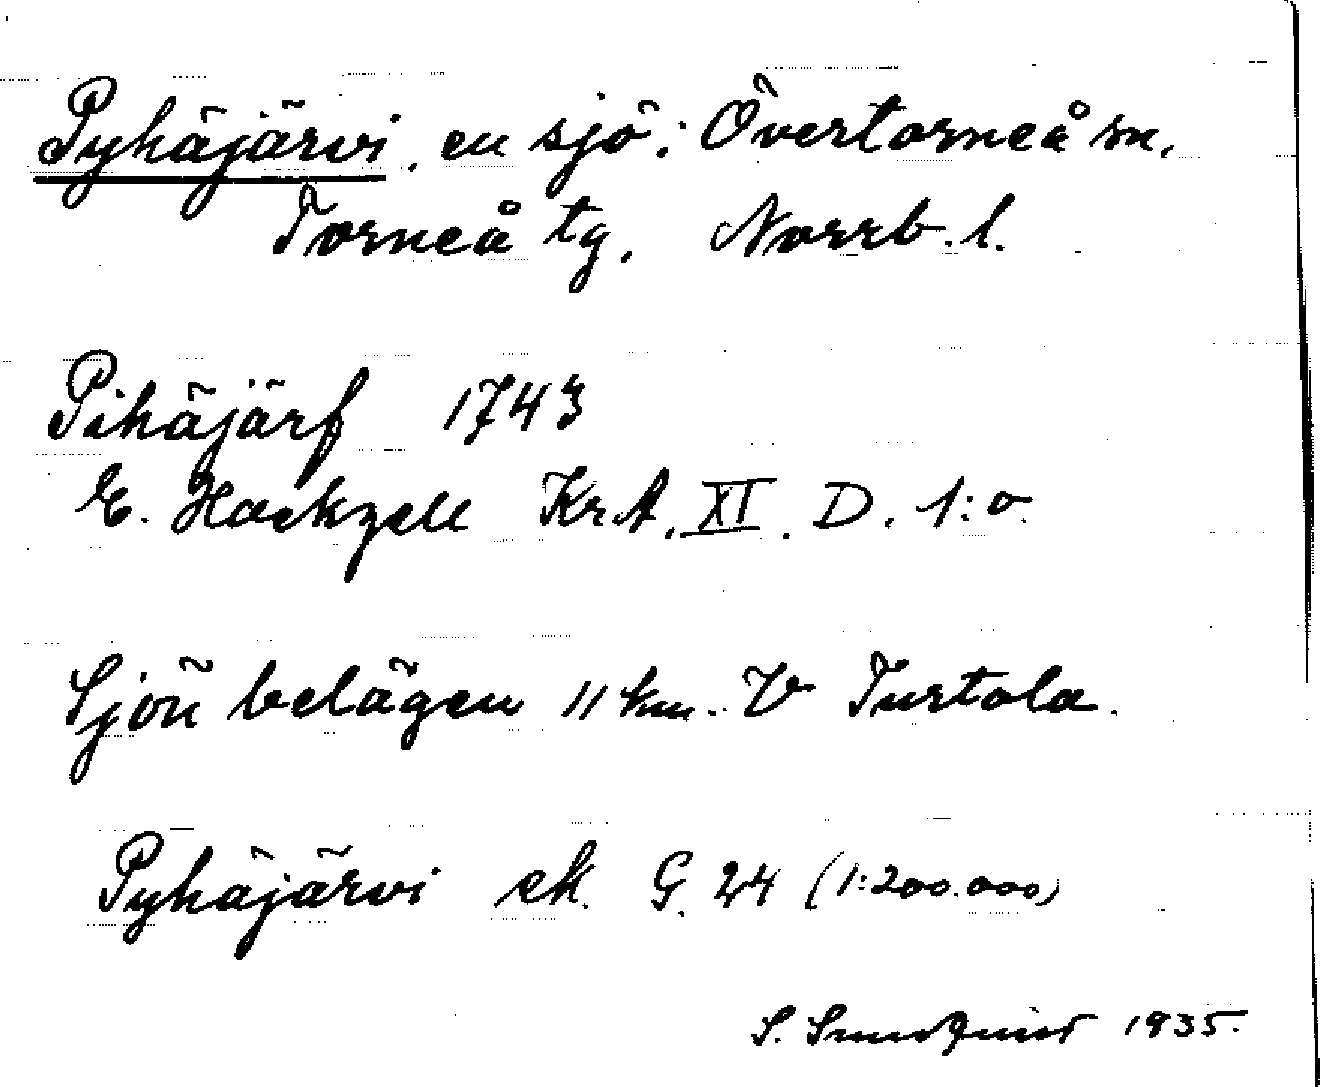 Pyhäjärvi, en sjö; Övertorneå sn.
Torneå tg. Norrb. l.
Pihäjärf 1743
E. Hackzell Kr.A. XI. D. 1:o.
Sjön belägen 11 km. V Turtola.
Pyhäjärvi ek. G. 24 (1:200.000)
S. Sundquist 1935.